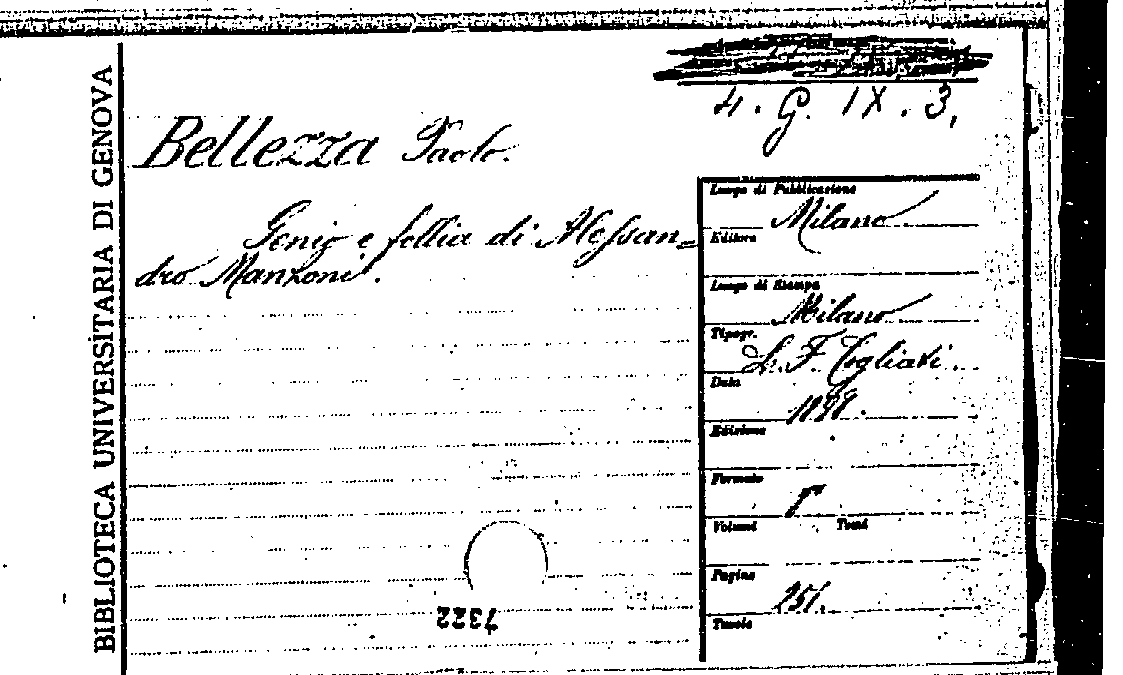 BIBLIOTECA UNIVERSITARIA DI GENOVA
4. G. IX. 3.
Bellezza Paolo.
Genio e follia di Alessan=
dro Manzoni.
Luogo di Pubblicazione
Milano
Editore
Luogo di Stampa
Milano
Tipogr.
L. F. Cogliati.
Data
1898.
Edizione
Formato
8°
Volumi Tomi
Pagine
251.
Tavole
7322